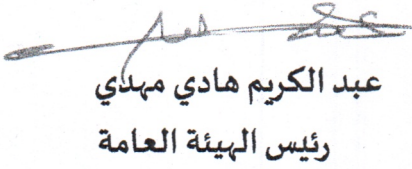 عبد الكريم هادي مهدي
رئيس الهيئة العامة